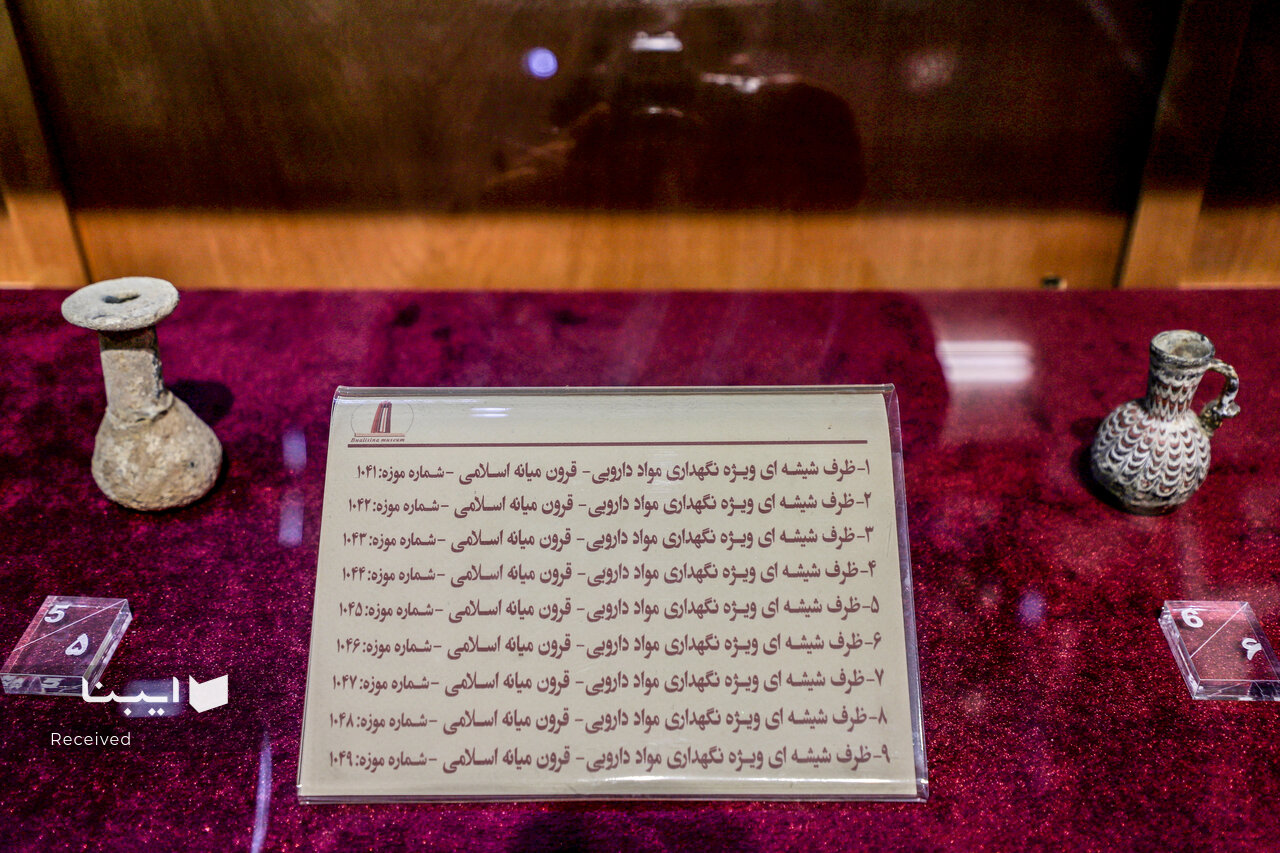 Bualisina museum
۱-ظرف شیشه ای ویژه نگهداری مواد دارویی- قرون میانه اسلامی -شماره موزه: ۱۰۴۱
۲-ظرف شیشه ای ویژه نگهداری مواد دارویی- قرون میانه اسلامی -شماره موزه: ۱۰۴۲
۳-ظرف شیشه ای ویژه نگهداری مواد دارویی- قرون میانه اسلامی -شماره موزه: ۱۰۴۳
۴-ظرف شیشه ای ویژه نگهداری مواد دارویی- قرون میانه اسلامی -شماره موزه: ۱۰۴۴
۵-ظرف شیشه ای ویژه نگهداری مواد دارویی- قرون میانه اسلامی -شماره موزه: ۱۰۴۵
۶-ظرف شیشه ای ویژه نگهداری مواد دارویی- قرون میانه اسلامی -شماره موزه: ۱۰۴۶
۷-ظرف شیشه ای ویژه نگهداری مواد دارویی- قرون میانه اسلامی -شماره موزه: ۱۰۴۷
۸-ظرف شیشه ای ویژه نگهداری مواد دارویی- قرون میانه اسلامی -شماره موزه: ۱۰۴۸
۹-ظرف شیشه ای ویژه نگهداری مواد دارویی- قرون میانه اسلامی -شماره موزه: ۱۰۴۹
5
۵
6
۶
ایبنا
Received